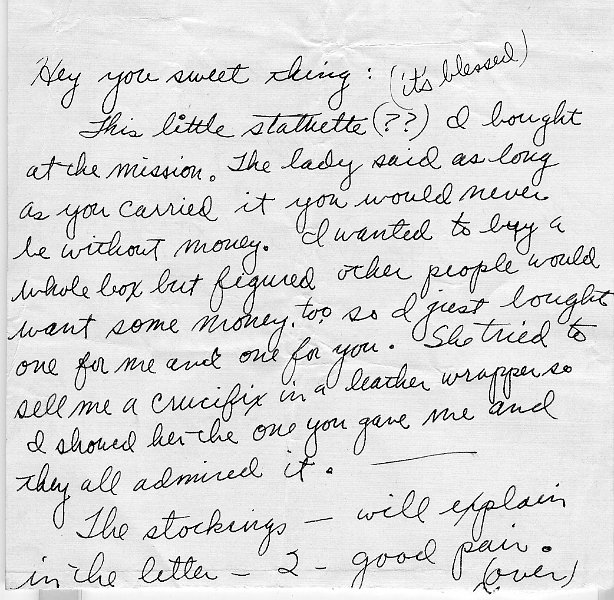 Hey you sweet thing: (it's blessed)
This little stathette (??) I bought
at the mission. The lady said as long
as you carried it you would never
be without money. I wanted to buy a
whole box but figured other people would
want some money, too so I just bought
one for me and one for you. She tried to
sell me a crucifix in a leather wrapper so
I showed her the one you gave me and
they all admired it. —
The stockings — will explain
in the letter — 2 — good pair.
(over)